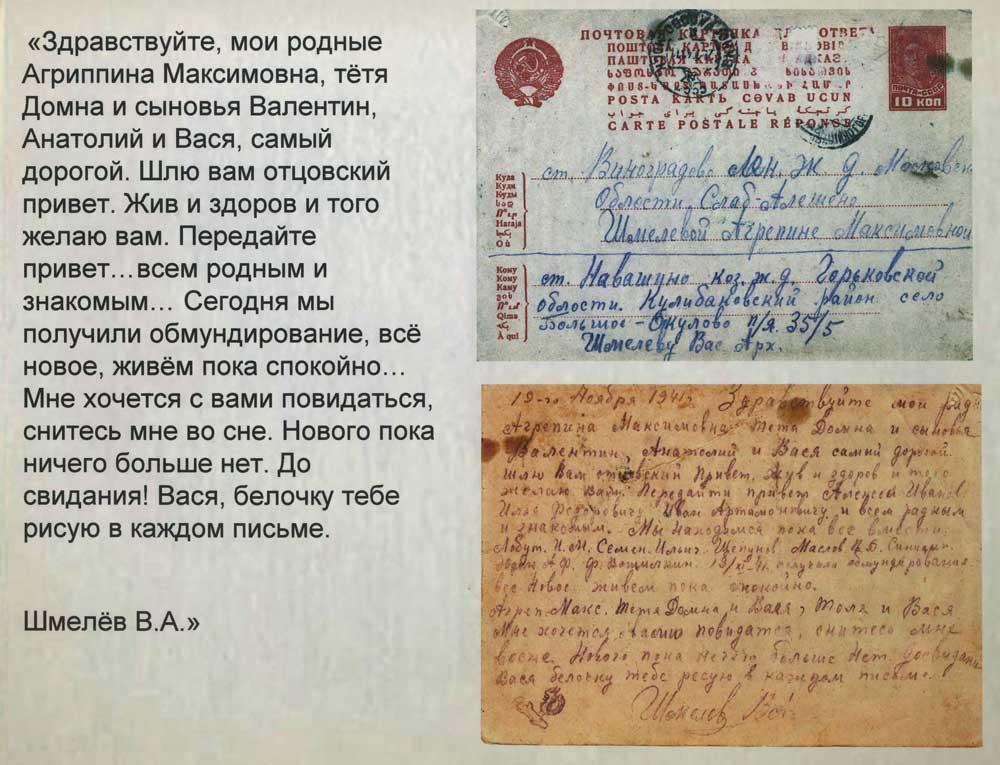 «Здравствуйте, мои родные
Агриппина Максимовна, тётя
Домна и сыновья Валентин,
Анатолий и Вася, самый
дорогой. Шлю вам отцовский
привет. Жив и здоров и того
желаю вам. Передайте
привет…всем родным и
знакомым… Сегодня мы
получили обмундирование, всё
новое, живём пока спокойно…
Мне хочется с вами повидаться,
снитесь мне во сне. Нового пока
ничего больше нет. До
свидания! Вася, белочку тебе
рисую в каждом письме.
Шмелёв В.А.»
ПОЧТОВАЯ КАРТОЧКА ДЛЯ ОТВЕТА
ПОШТОВА
ПАШТОВАЯ КАРТКА
POSTA KARTЬ CƏVAB UCUN
CARTE POSTALE RÉPONSE
ПОЧТА СССР
10 КОП
Куда
Куди
Куды
Haraja
Où
ст. Виноградово Лен. ж д. Московск
Области. Слаб-Алешено
Шмелевой Агрепине Максимовной
Кому
Кому
Каму
Qimə
À qui
ст. Навашуно каз. ж. д Горьковской
области. Кулибаковский район село
Большое-Окулово п/я. 35/5
Шмелеву Вас Арх.
19-го Ноября 1941г Здравствуйте мои род
Агрепина Максимовна тетя Домна и сыновья
Валентин, Анатолий и Вася самий дорогой.
Шлю Вам отцовский Привет. Жув и здоров и того
желаю Вам. Передайти привет Алексей Иванов
Илья Федоровичу Иван Артамоновичу и всем радным
и знакомым. Мы находимся пока все вмести.
Лобут. И. М. Семен. Ильич. Щепунов Маслов
А. Ф. получили обмундирование
все Новое живем пока спокойно.
Агреп. Макс. тетя Домна, и Вася, Толя и Вася
Мне хочется свами повидатся, снитесь мне
восне. Нового пока нечего больше нет. досвидани
Вася белочку тебе ресую в каждом письме.
Шмелев